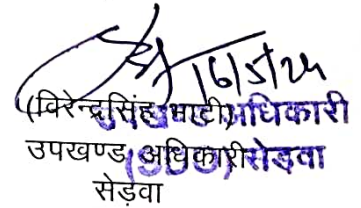 16/5/24
(विरेन्द्रसिंह भाटी)
उपखण्ड अधिकारी
सेड़वा
उपखण्ड अधिकारी
सेडवा